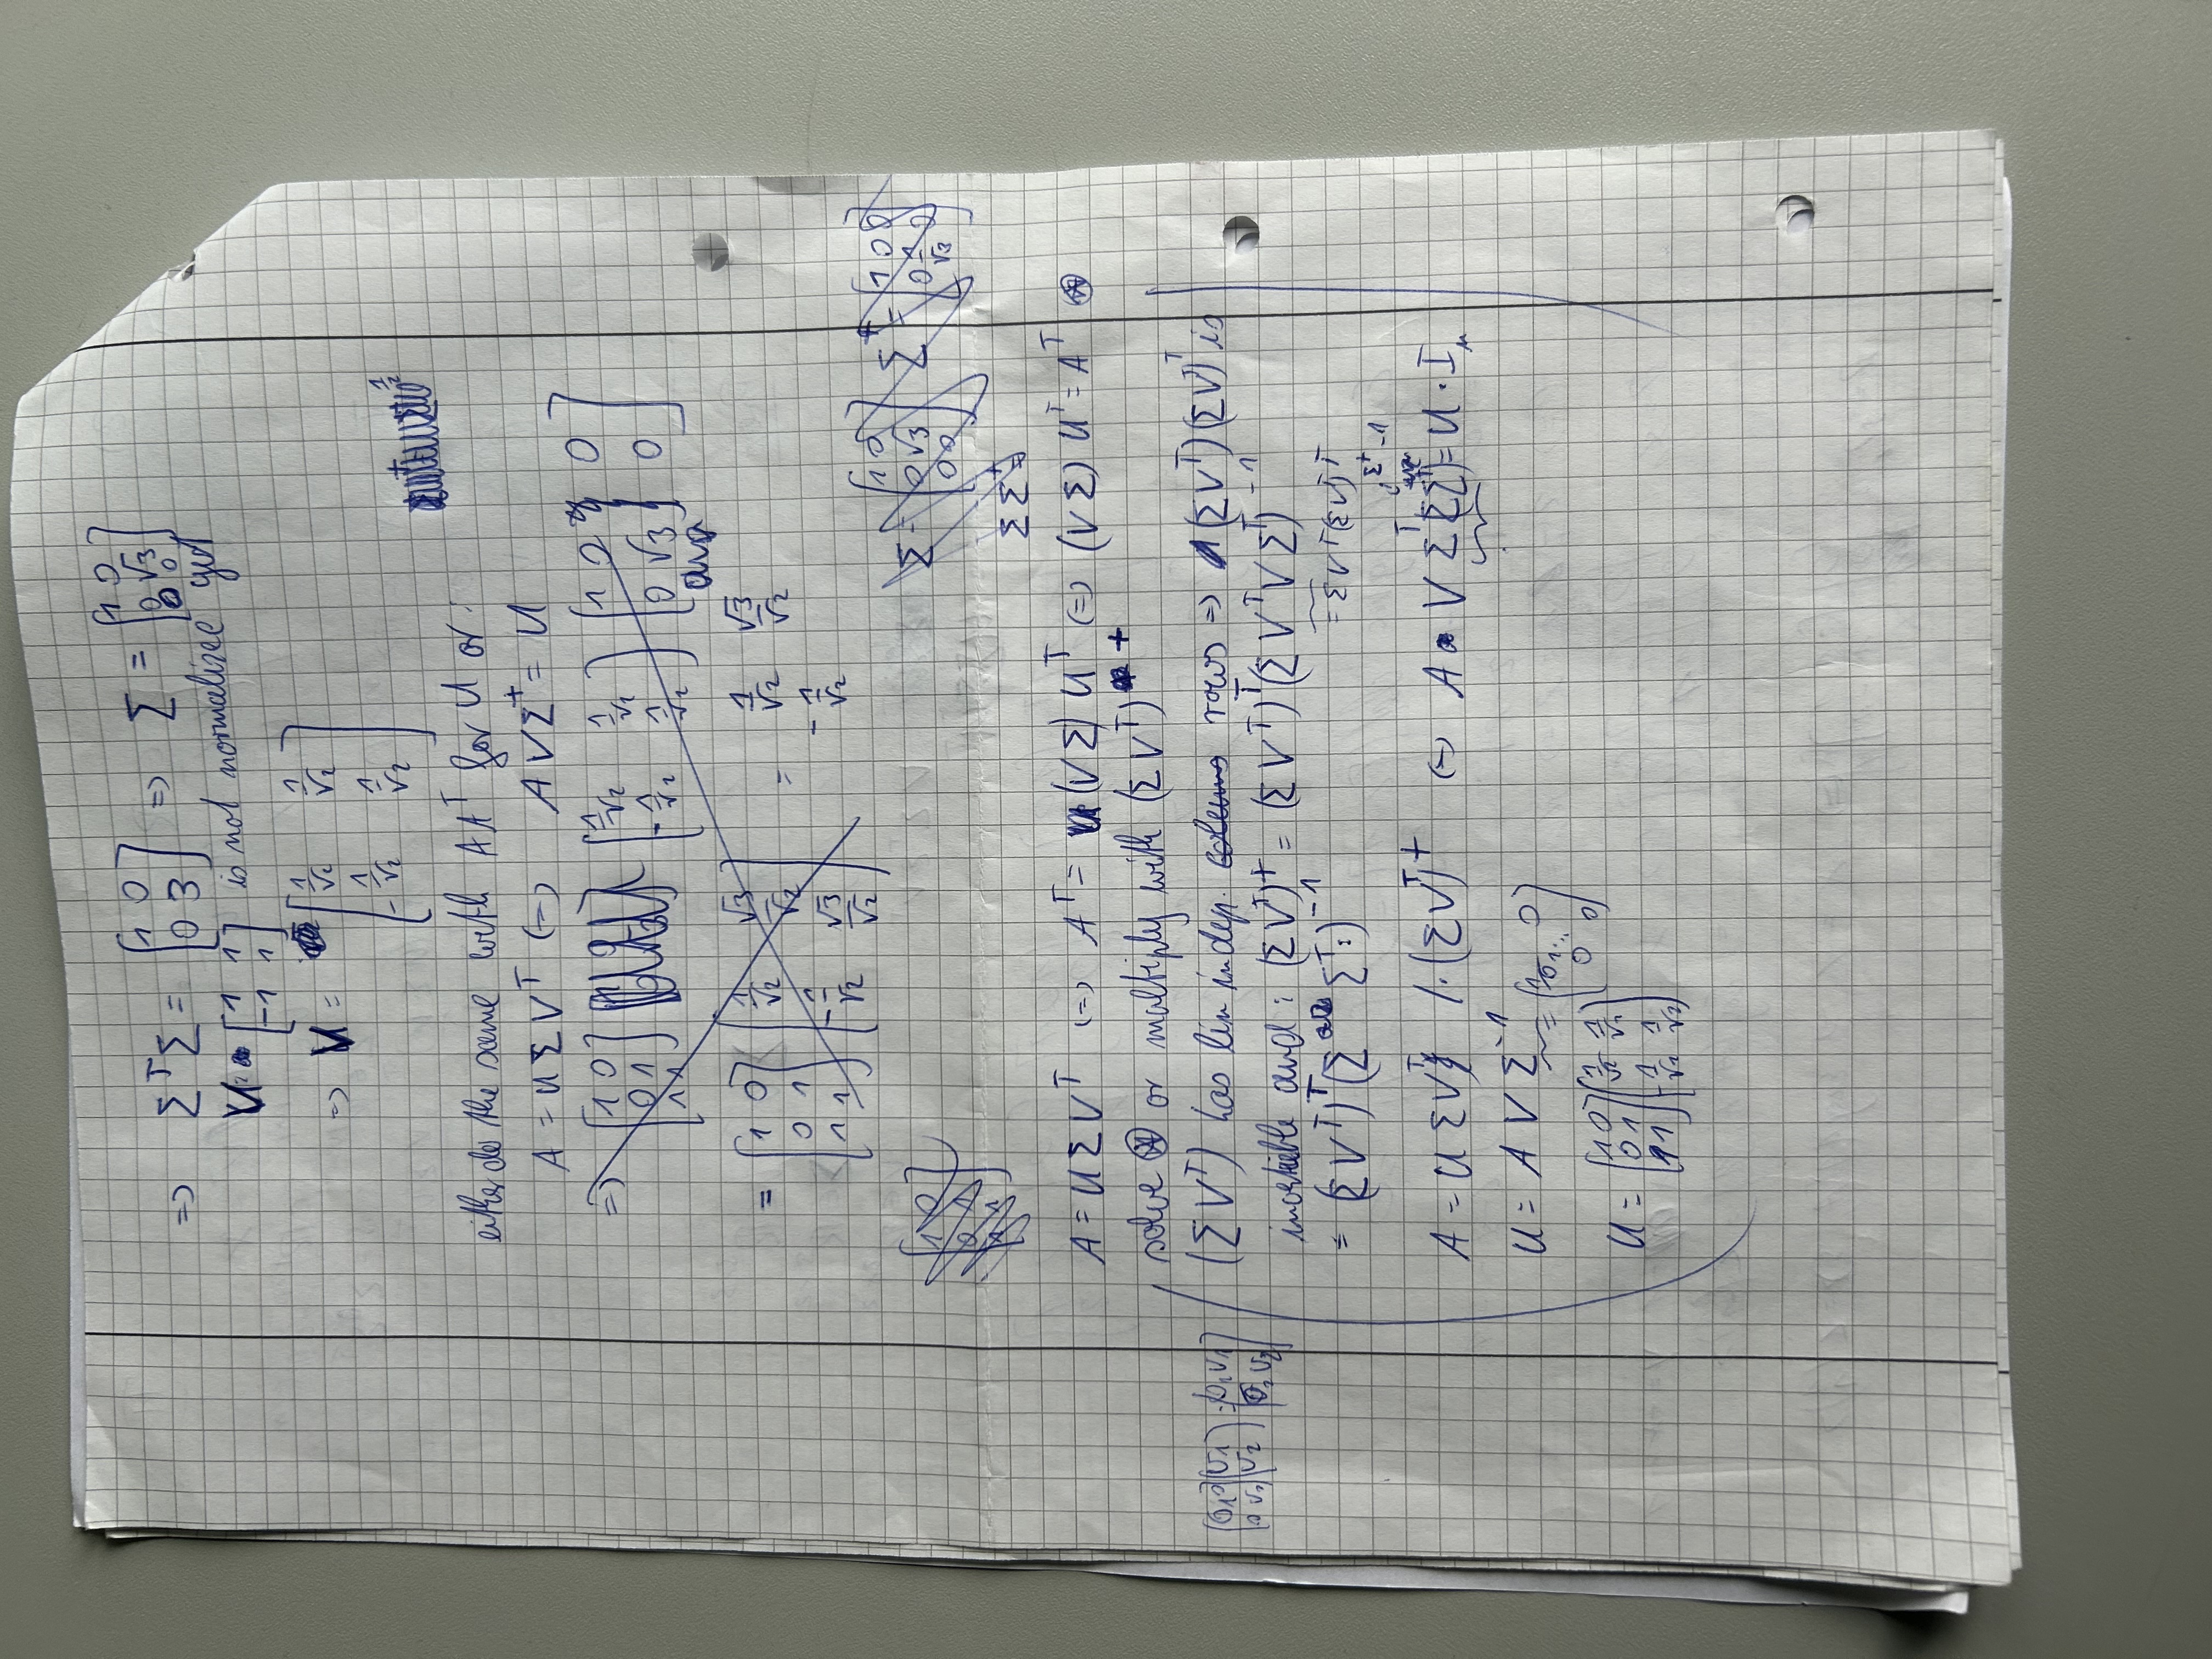 => Σ^T Σ = [1 0; 0 3] => Σ = [1 0; 0 √3; 0 0]
V = [1 1; -1 1] is not normalized yet
=> V = [1/√2 1/√2; -1/√2 1/√2]
either do the same with A A^T for U or:
A = U Σ V^T (=) A V Σ^+ = U
=> [1 0; 0 1; 1 1] [1/√2 1/√2; -1/√2 1/√2] [1 0 0; 0 √3 0]
= [1 0; 0 1; 1 1] [1/√2 √3/√2; -1/√2 √3/√2] = 1/√2 √3/√2 -1/√2
Σ = [1 0; 0 √3; 0 0] Σ^+ = [1 0 0; 0 1/√3 0]
[1 0; 0 1; 1 1]
Σ Σ^+ =
A = U Σ V^T (=) A^T = (V Σ) U^T (=) (V Σ) U^T = A^T ⊛
solve ⊛ or multiply with (Σ V^T)^+
(Σ V^T) has lin indep. colums rows => (Σ V^T)(Σ V^T)^T is
invertible and: (Σ V^T)^+ = (Σ V^T)^T (Σ V^T V Σ^T)^-1
= (Σ V^T)^T (Σ Σ^T)^-1
A = U Σ V^T /·(Σ V^T)^+ (=) A V Σ^T (Σ Σ^T)^-1 = U · I_m
U = A V Σ^-1 = [1/σ_1 ... 0; 0 0]
U = [1 0; 0 1; 1 1] [1/√2 1/√2; -1/√2 1/√2]